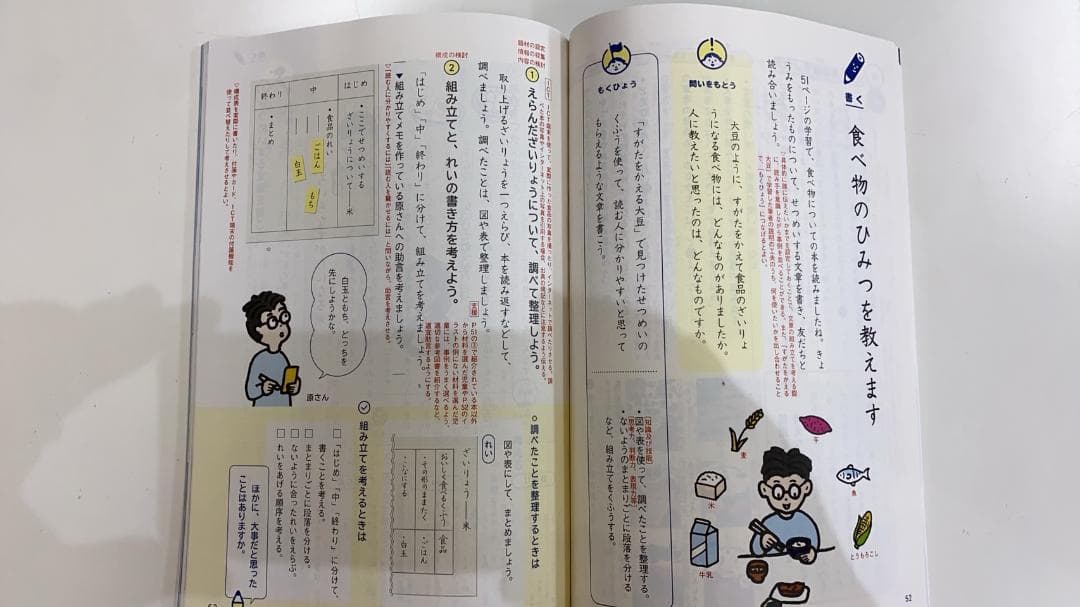 書く
食べ物のひみつを教えます
51ページの学習で、食べ物についての本を読みましたね。きょ
うみをもったものについて、せつめいする文章を書き、友だちと
読み合いましょう。
問いをもとう
大豆のように、すがたをかえて食品のざいりょ
うになる食べ物には、どんなものがありましたか。
人に教えたいと思ったのは、どんなものですか。
もくひょう
「すがたをかえる大豆」で見つけたせつめいの
くふうを使って、読む人に分かりやすいと思って
もらえるような文章を書こう。
知識及び技能
・図や表を使って、調べたことを整理する。
思考力、判断力、表現力等
・ないようのまとまりごとに段落を分ける
など、組み立てをくふうする。
芋
麦
魚
米
牛乳
とうもろこし
52
題材の設定
情報の収集
内容の検討
① えらんだざいりょうについて、調べて整理しよう。
取り上げるざいりょうを一つえらび、本を読み返すなどして、
調べましょう。調べたことは、図や表で整理しましょう。
支援
P51の③で紹介されている本以外
から材料を選んだ児童やP52のイ
ラストの例にない材料を選んだ児
童には、事例をうまく選べるよう、
適切な参考図書を紹介するなど、
適宜助言するようにする。
構成の検討
② 組み立てと、れいの書き方を考えよう。
「はじめ」「中」「終わり」に分けて、組み立てを考えましょう。
▼組み立てメモを作っている原さんへの助言を考えましょう。
はじめ
・ここでせつめいする
ざいりょうについて
米
中
・食品のれい
ごはん
白玉
もち
終わり
・まとめ
白玉ともち、どっちを
先にしようかな。
原さん
調べたことを整理するときは
図や表にして、まとめましょう。
れい
ざいりょう 米
おいしく食べるくふう
食品
・その形のままたく
・ごはん
・こなにする
・白玉
組み立てを考えるときは
□「はじめ」「中」「終わり」に分けて、
書くことを考える。
□まとまりごとに段落を分ける。
□ないように合ったれいをえらぶ。
□れいをあげる順序を考える。
ほかに、大事だと思った
ことはありますか。